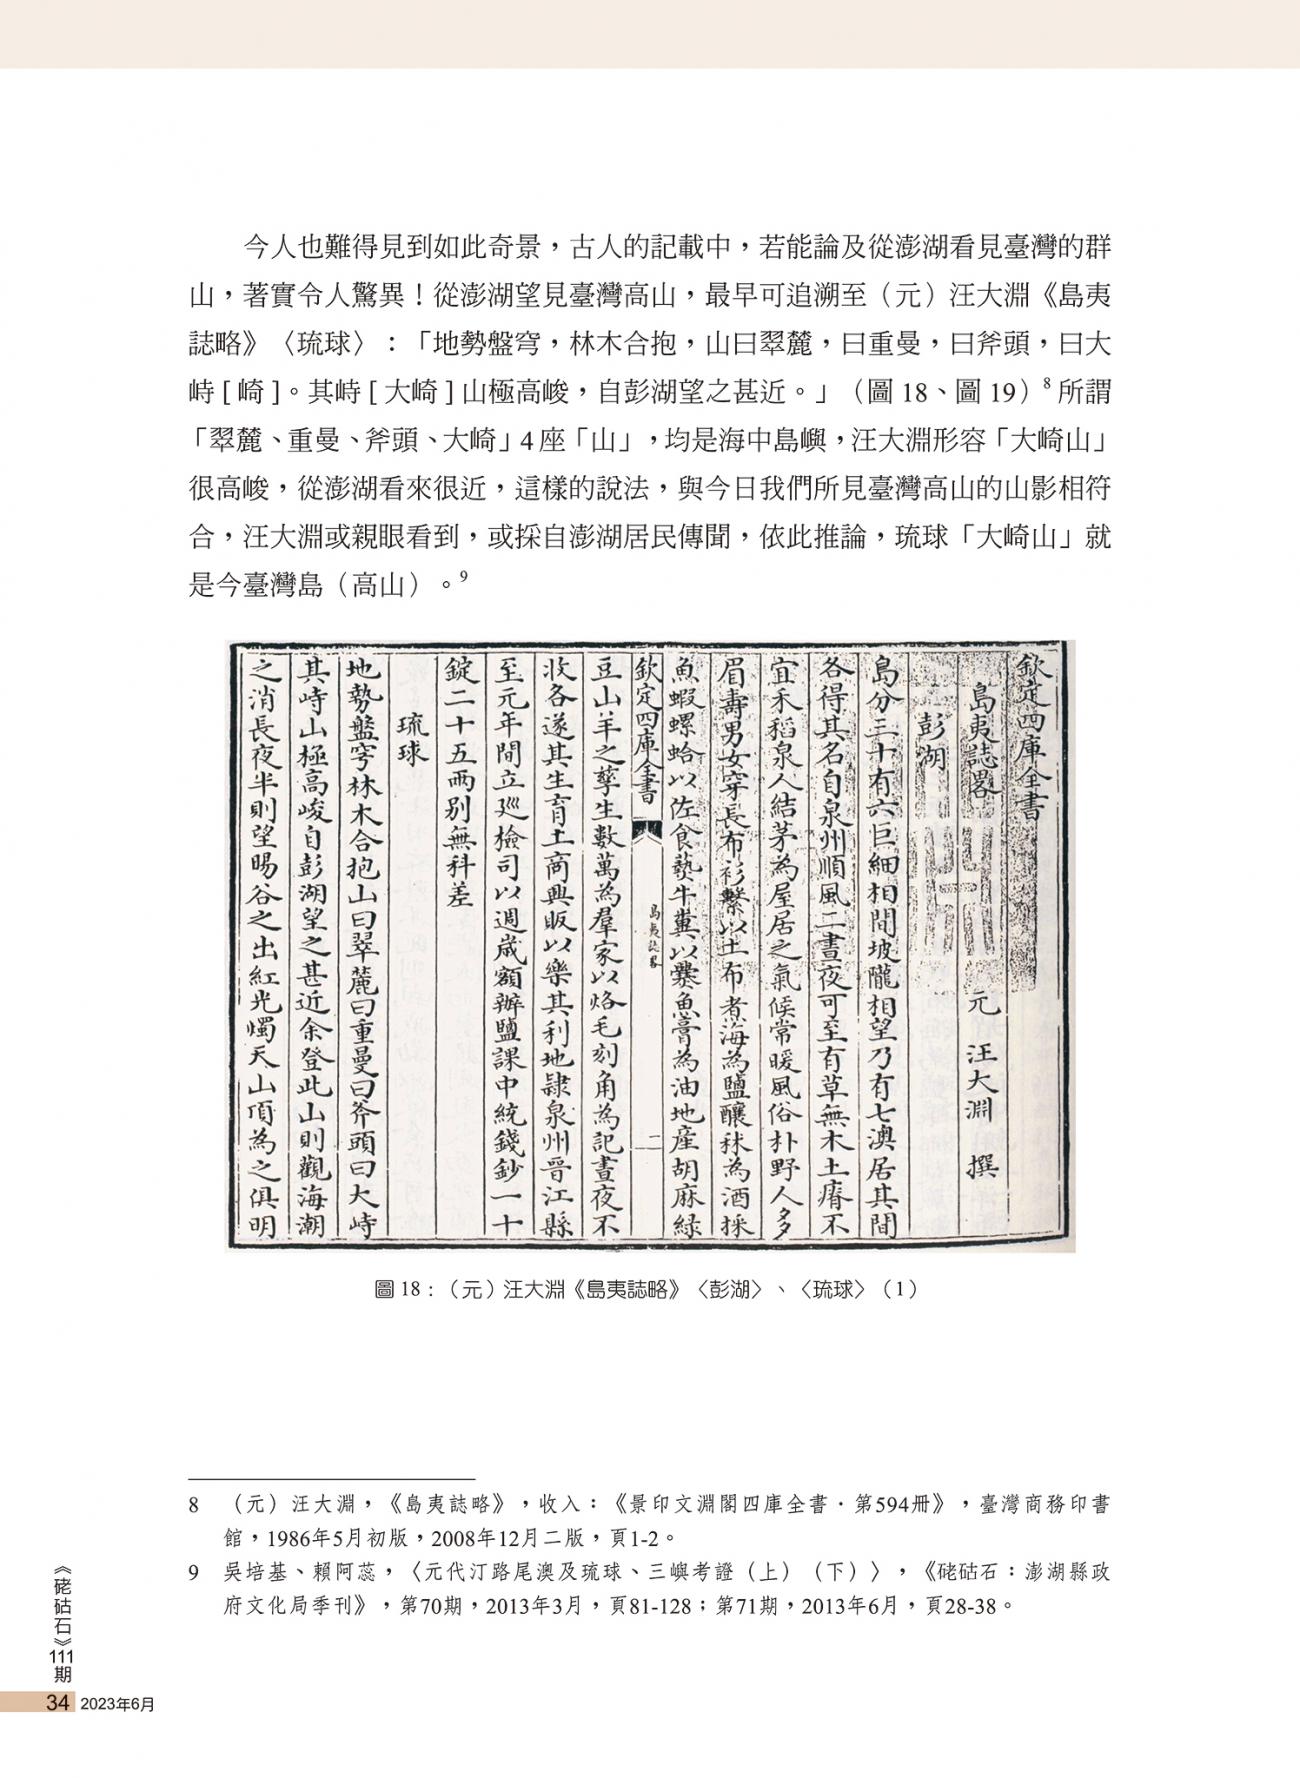 今人也難得見到如此奇景，古人的記載中，若能論及從澎湖看見臺灣的群
山，著實令人驚異！從澎湖望見臺灣高山，最早可追溯至（元）汪大淵《島夷
誌略》〈琉球〉：「地勢盤穹，林木合抱，山曰翠麓，曰重曼，曰斧頭，曰大
峙[崎]。其峙[大崎]山極高峻，自彭湖望之甚近。」（圖18、圖19）8所謂
「翠麓、重曼、斧頭、大崎」4座「山」，均是海中島嶼，汪大淵形容「大崎山」
很高峻，從澎湖看來很近，這樣的說法，與今日我們所見臺灣高山的山影相符
合，汪大淵或親眼看到，或採自澎湖居民傳聞，依此推論，琉球「大崎山」就
是今臺灣島（高山）。9
欽定四庫全書
島夷誌畧
元 汪大淵 撰
彭湖
島分三十有六巨細相間坡隴相望乃有七澳居其間
各得其名自泉州順風二晝夜可至有草無木土瘠不
宜禾稻泉人結茅為屋居之氣候常暖風俗朴野人多
眉壽男女穿長布衫繫以土布煮海為鹽釀秫為酒採
魚蝦螺蛤以佐食爇牛糞以爨魚膏為油地產胡麻綠
欽定四庫全書
島夷誌畧
二
豆山羊之孳生數萬為羣家以烙毛刻角為記晝夜不
收各遂其生育土商興販以樂其利地隸泉州晉江縣
至元年間立廵檢司以週歲額辦鹽課中統錢鈔一十
錠二十五兩別無科差
琉球
地勢盤穹林木合抱山曰翠麓曰重曼曰斧頭曰大峙
其峙山極高峻自彭湖望之甚近余登此山則觀海潮
之消長夜半則望暘谷之出紅光燭天山頂為之俱明
圖18：（元）汪大淵《島夷誌略》〈彭湖〉、〈琉球〉（1）
8 （元）汪大淵，《島夷誌略》，收入：《景印文淵閣四庫全書．第594冊》，臺灣商務印書
館，1986年5月初版，2008年12月二版，頁1-2。
9 吳培基、賴阿蕊，〈元代汀路尾澳及琉球、三嶼考證（上）（下）〉，《硓𥑮石：澎湖縣政
府文化局季刊》，第70期，2013年3月，頁81-128；第71期，2013年6月，頁28-38。
《硓𥑮石》111期
34 2023年6月